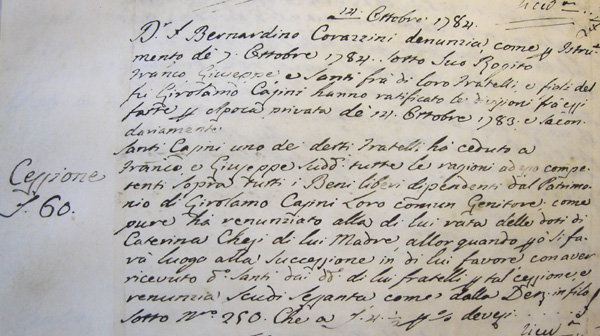 12. Ottobre 1784.
Dr. A Bernardino Corazzini denunzia, come p Istru-
mento de 7. Ottobre 1784. sotto suo Rogito
Franco Giuseppe, e Santi frà di loro Fratelli, e figli del
fù Girolamo Capini hanno ratificato le divisioni frà essi
fatte p Apoca privata de 12. Ottobre 1783. e secon-
dariamente
Santi Capini uno de detti Fratelli ha ceduto a
Franco, e Giuseppe Sudd. tutte le ragioni ad esso compe-
tenti sopra tutti i Beni liberi dipendenti dal Patrimo-
nio di Girolamo Capini Loro comun Genitore, come
pure ha renunziato alla di lui rata delle doti di
Caterina di lui Madre, allor quando si fa-
rà luogo alla Successione in di lui favore con aver
ricevuto do. Santi dai dd. di lui fratelli p tal cessione, e
renunzia Scudi Sessanta come dalla Den. in filo
sotto No. 250. Che a
Cessione
60.